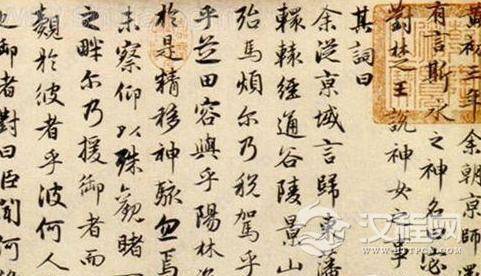 黄初三年余朝京師
有言斯水之神名曰宓
對楚王說神女之事
其詞曰
余從京域言歸東藩
轘轅經通谷陵景山
殆馬煩尔乃稅駕乎
乎芝田容與乎陽林
於是精移神駭忽焉
未察仰以殊觀睹
之畔尔乃援御者而
覿於彼者乎彼何人
也御者對曰臣聞河
汉程网